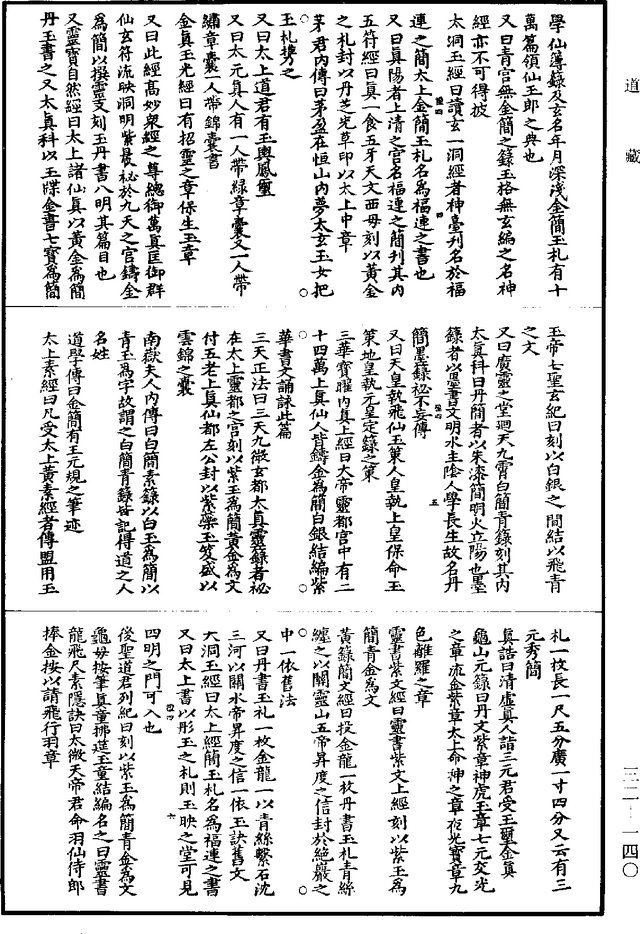 道藏
三二-一四〇
學仙簿錄及玄名年月深淺金簡玉札有十
萬篇領仙玉郎之典也
又曰青宮無金簡之錄玉格無玄編之名神
經亦不可得披
太洞玉經曰讀玄一洞經者神臺刊名於福
連之簡太上金簡玉札名為福連之書也
又曰真陽者上清之宮名福連之簡刊其內
五符經曰真一食五牙天文西母刻以黃金
之札封以丹芝光草印以太上中章
茅君內傳曰茅盈在恒山內夢太玄玉女把
玉札攜之
又曰太上道君有玉輿鳳璽
又曰太元真人有一人帶綠章囊又一人帶
繡章囊一人帶錦囊書
金真玉光經曰有招靈之章保生玉章
又曰此經高妙衆經之尊總御萬真匡御群
仙玄符流映洞明紫䕃祕於九天之宮鑄金
為簡以撰靈文刻玉丹書八明其篇目也
又靈寶自然經曰太上諸仙真以黃金為簡
丹玉書之又太真科以玉牒金書七寶為簡
玉帝七聖玄紀曰刻以白銀之簡結以飛青
之文
又曰廣靈之堂迴天九霄白簡青籙刻其內
太真科曰丹簡者以朱漆簡明火立陽也墨
籙者以墨書文明水主陰人學長生故名丹
簡墨籙祕不妄傳
又曰天皇執飛仙玉策人皇執上皇保命玉
策地皇執元皇定籙之策
三華寶曜內真上經曰大帝靈都宮中有二
十四萬上真仙人皆鑄金為簡白銀結編紫
華書文誦詠此篇
三天正法曰三天九微玄都太真靈籙者祕
在太上靈都之宮刻以紫玉為簡黃金為文
付五老上真仙都左公封以紫蘂玉笈盛以
雲錦之囊
南嶽夫人內傳曰白簡素籙以白玉為簡以
青玉為字故謂之白簡青籙皆記得道之人
名姓
道學傳曰金簡有王元規之筆迹
太上素經曰凡受太上黃素經者傳盟用玉
札一枚長一尺五分廣一寸四分又云有三
元秀簡
真誥曰清虛真人詣三元君受玉璽金真
龜山元籙曰丹文紫章神虎玉章七元交光
之章流金紫章太上命神之章夜光寶章九
色離羅之章
靈書紫文經曰靈書紫文上經刻以紫玉為
簡青金為文
黃籙簡文經曰投金龍一枚丹書玉札青絲
纏之以關靈山五帝昇度之信封於絕巖之
中一依舊法
又曰丹書玉札一枚金龍一以青絲繫石沈
三河以關水帝昇度之信一依玉訣舊文
大洞玉經曰太上經簡玉札名為福連之書
又曰太上書以形玉之札則玉映之堂可見
四明之門可入也
後聖道君列紀曰刻以紫玉為簡青金為文
龜母按筆真童拂筵玉童結編名之曰靈書
龍飛尺素隱訣曰太微天帝君命羽仙侍郎
捧金按以請飛行羽章